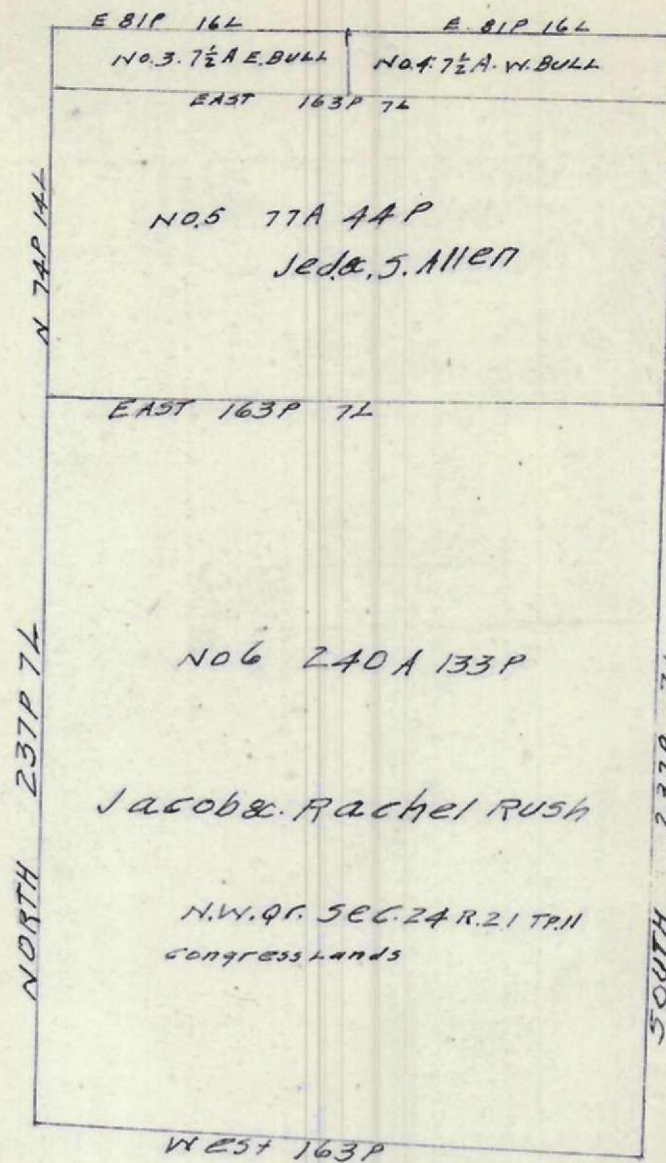 E 81P 16L
E. 81P 16L
NO.3. 7½ A E.BULL
NO.4. 7½ A. W. BULL
EAST 163P 7L
N 74P 14L
NO.5 77A 44P
Jed.&. S. Allen
EAST 163P 7L
NORTH 237P 7L
NO 6 240 A 133P
Jacob &. Rachel Rush
N.W. Qr. Sec. 24 R. 21 TP.11
Congress Lands
SOUTH 237P 7L
West 163P